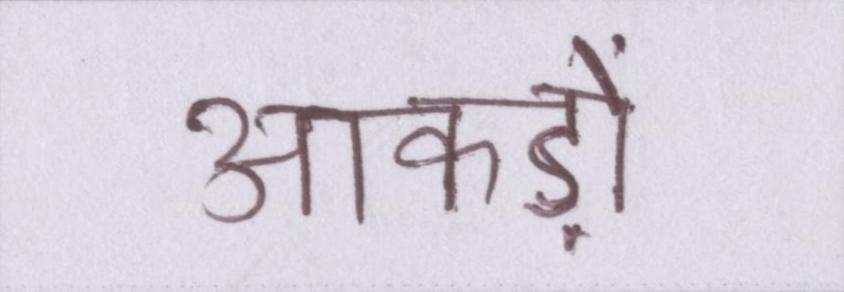 आकड़ों